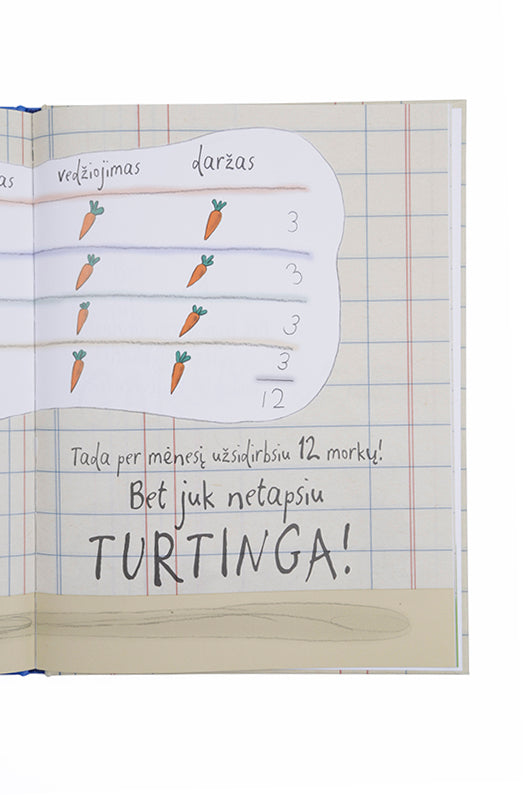 as vedžiojimas daržas
3
3
3
3
12
Tada per mėnesį užsidirbsiu 12 morkų!
Bet juk netapsiu
TURTINGA!